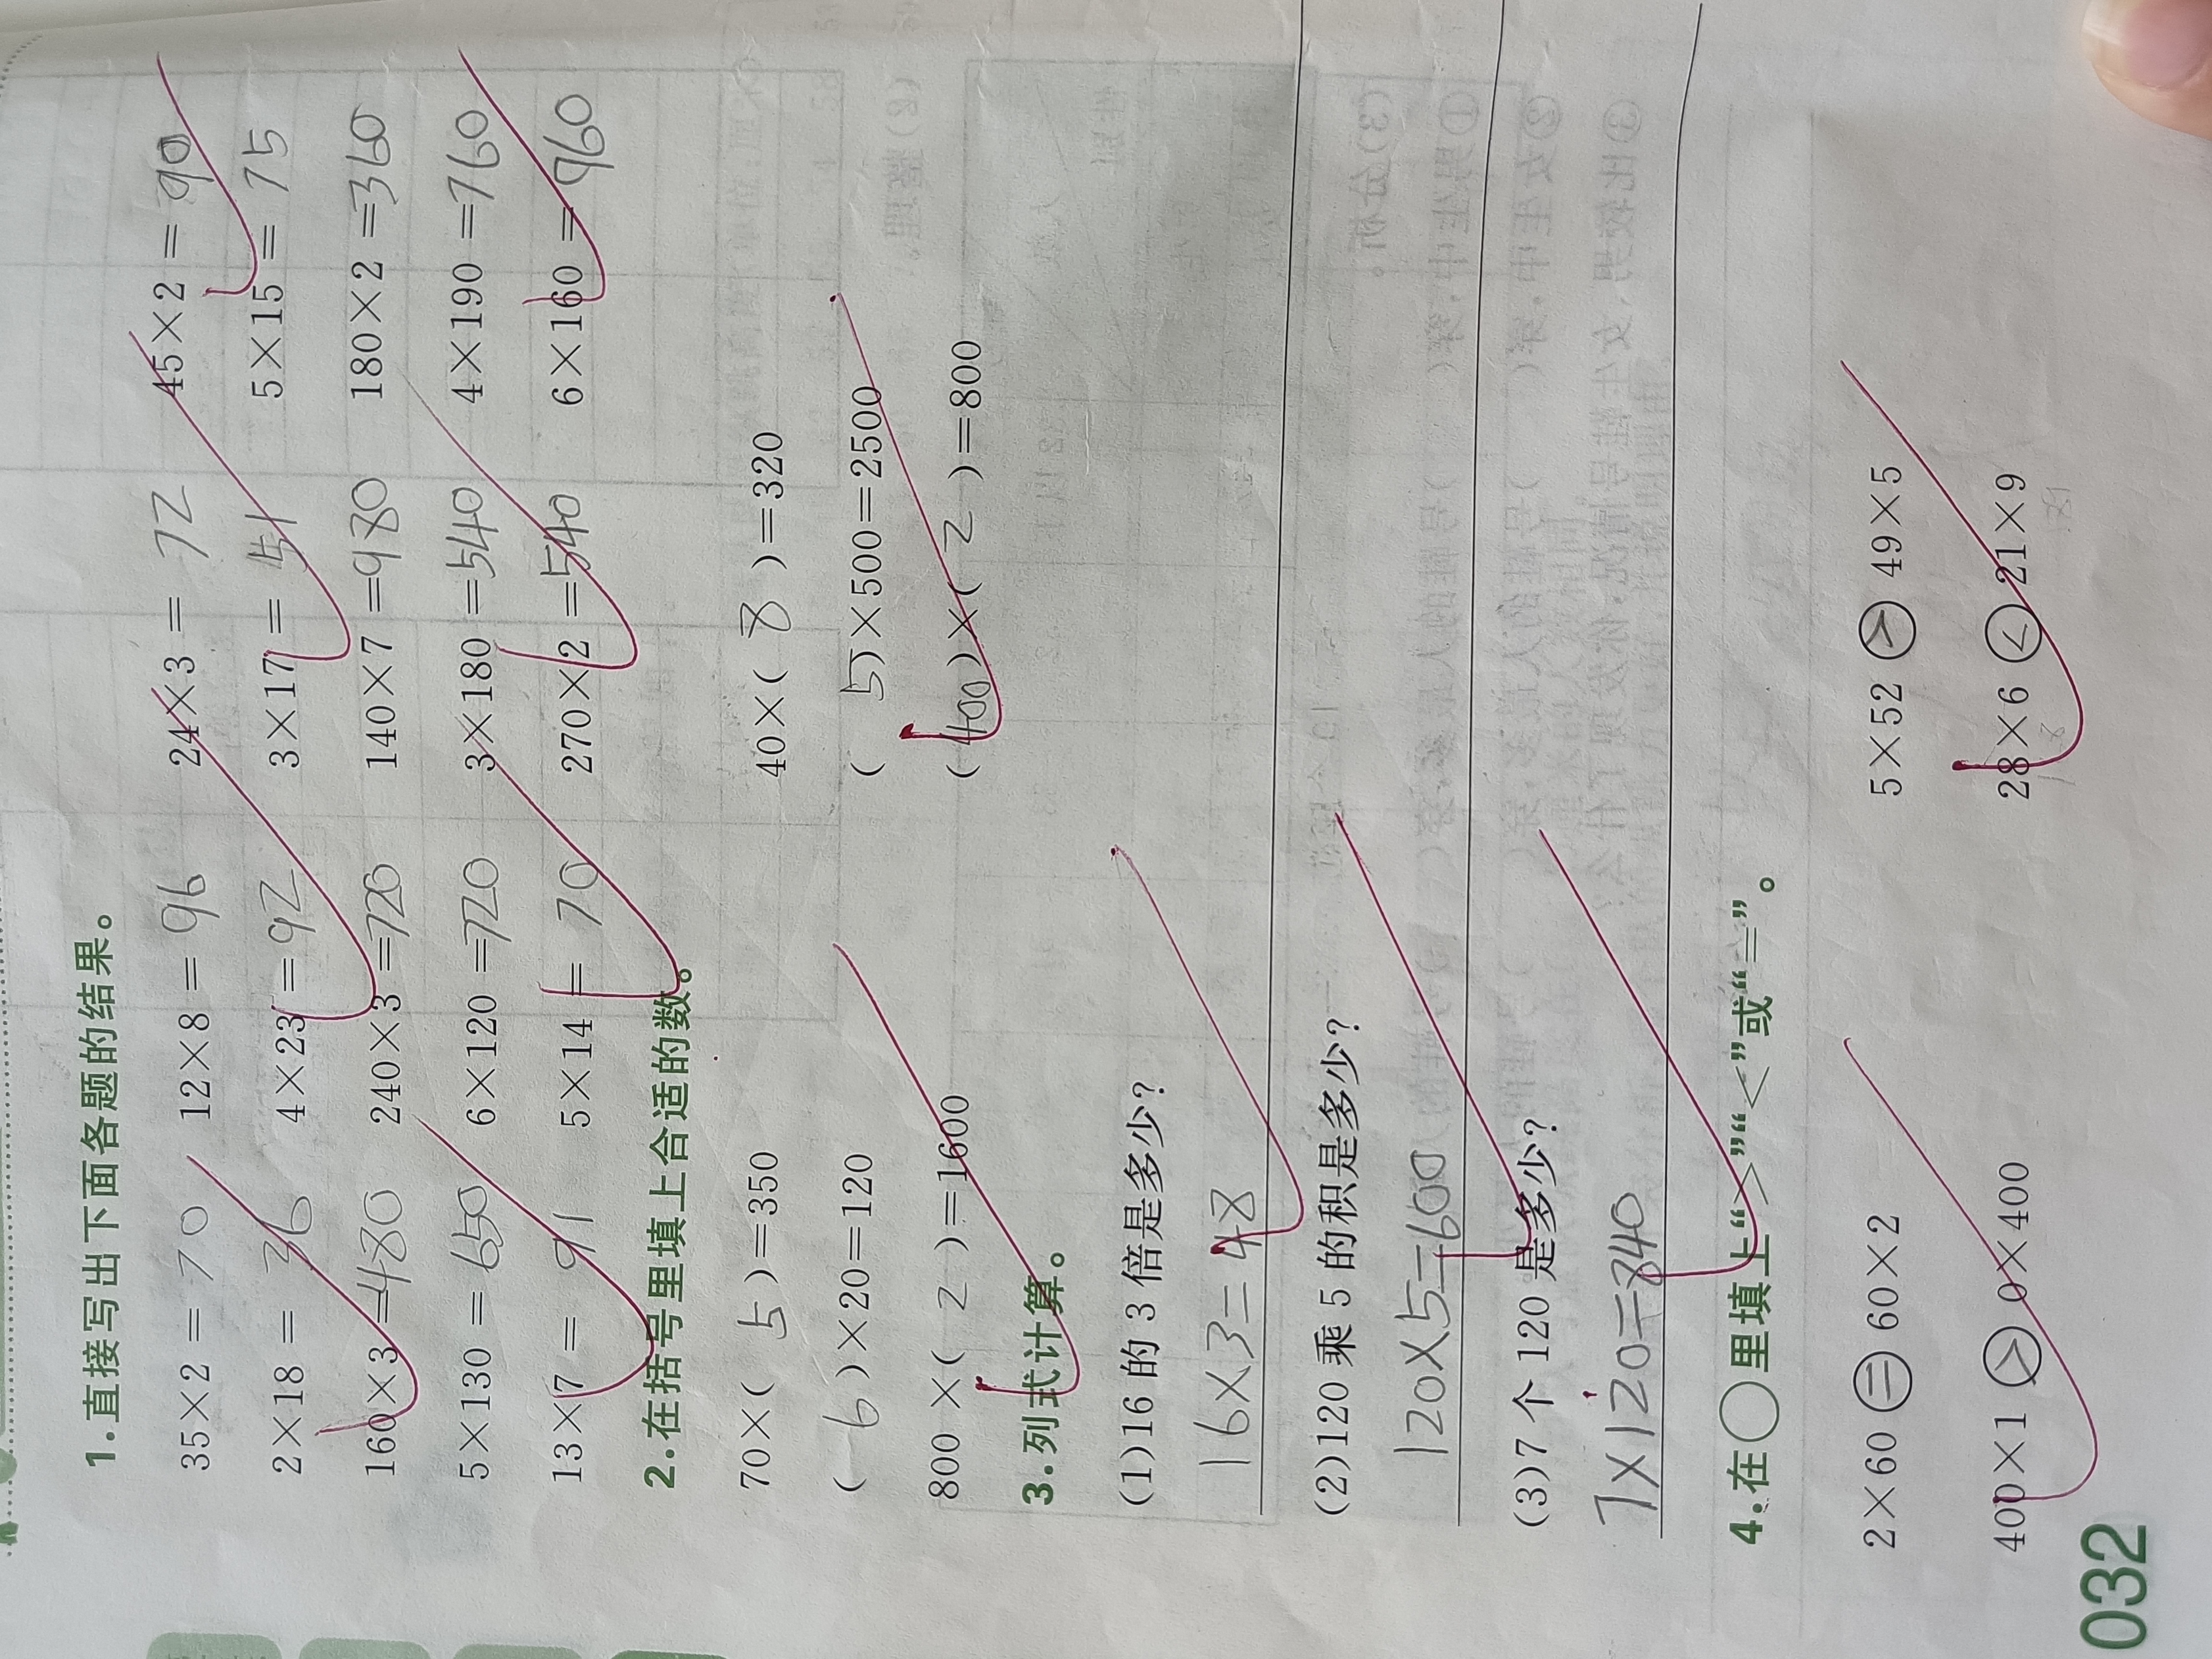 1.直接写出下面各题的结果。
35×2= 70 12×8= 96 24×3= 72 45×2= 90
2×18= 36 4×23= 92 3×17= 51 5×15= 75
160×3=480 240×3=720 140×7=980 180×2=360
5×130=650 6×120=720 3×180=540 4×190=760
13×7= 91 5×14= 70 270×2=540 6×160=960
2.在括号里填上合适的数。
70×( 5 )=350 40×( 8 )=320
( 6 )×20=120 ( 5 )×500=2500
800×( 2 )=1600 (400)×( 2 )=800
3.列式计算。
(1)16的3倍是多少?
16×3=48
(2)120乘5的积是多少?
120×5=600
(3)7个120是多少?
7×120=840
4.在○里填上“>”“<”或“=”。
2×60 = 60×2 5×52 > 49×5
400×1 > 0×400 28×6 < 21×9
032